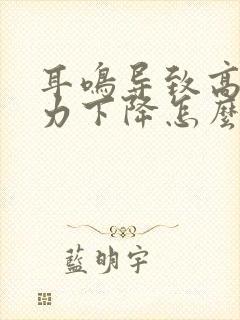 耳鸣导致高
力下降怎麼
藍明宇